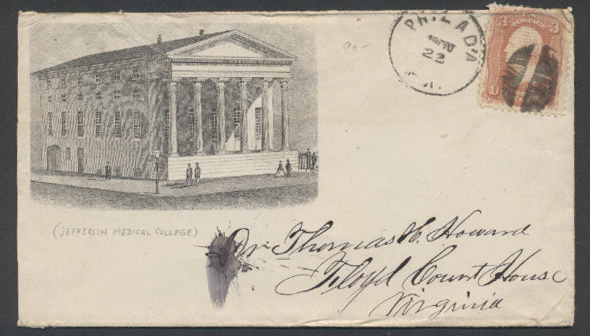 PHILAD'A
22
PA.
3
U
(JEFFERSON MEDICAL COLLEGE)
Dr. Thomas H. Howard
Floyd Court House
Virginia